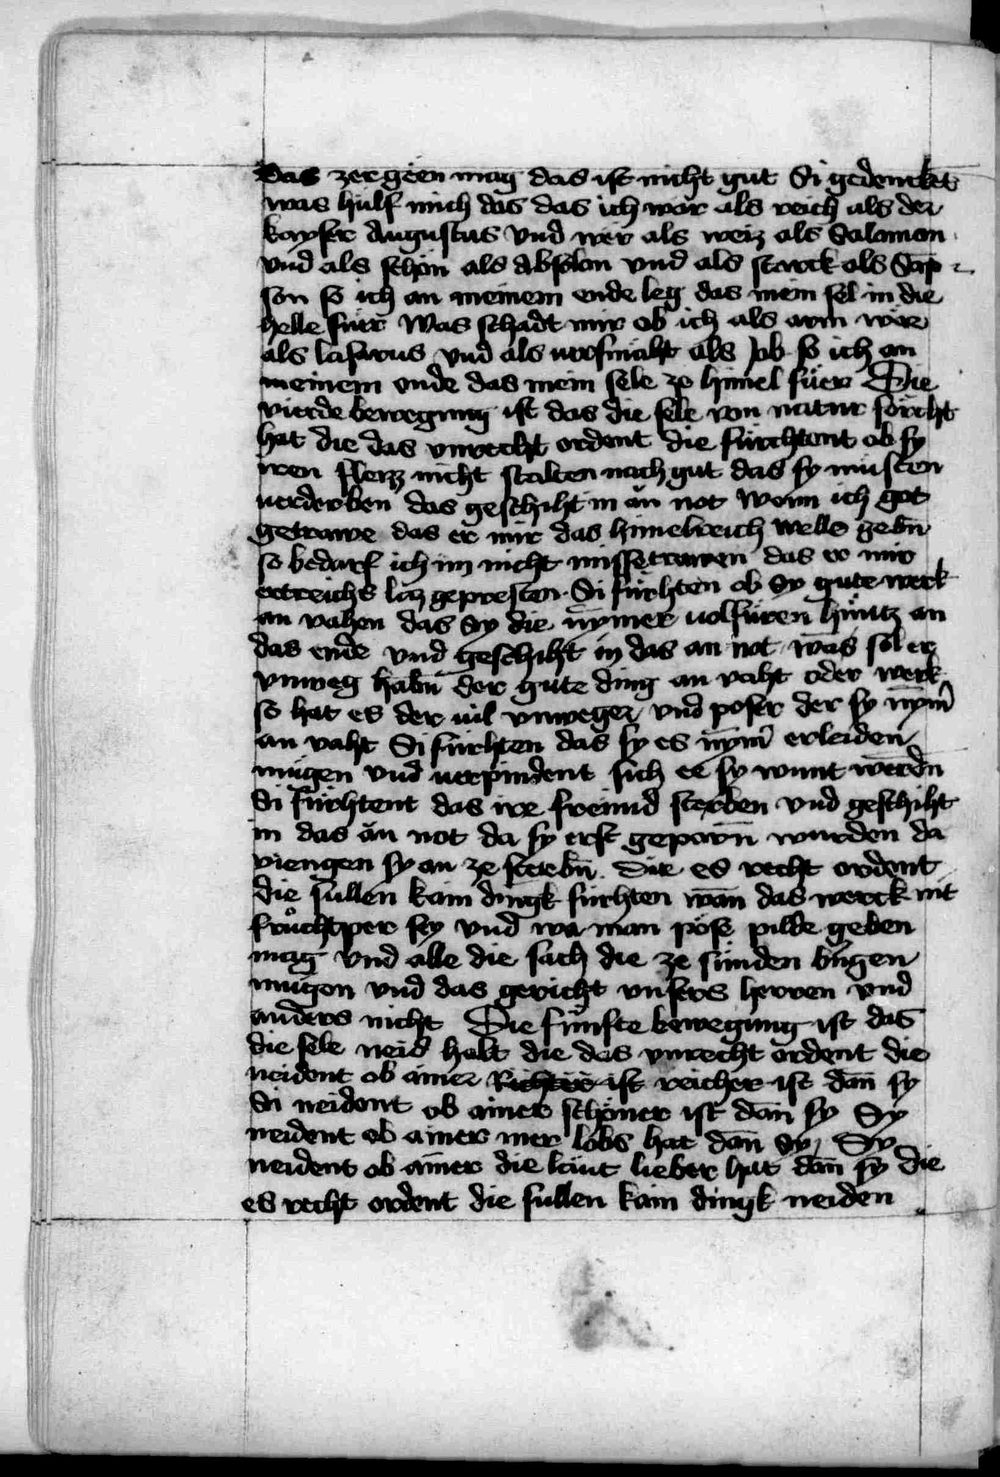 das zergeen mag das ist nicht gut Si gedencket
was hulf mich das das ich wär als reich als der
kayser Augustus vnd wer als weiz als Salamon
vnd als schön als Absolon vnd als starck als Sāp
son so ich an meinem ende leg das mein sel in die
helle fuer Was schadt mir ob ich als arm wär
als lasarus vnd als uersmäht als Job so ich an
meinem ende das mein sele ze himel füer Die
vierde bewegung ist das die sele von natur forcht
hat die das vnrecht ordent die fürchtent ob sy
iren fleizz nicht stalten nach gut das sy müsten
uerderben das geschiht in än not Wenn ich got
getrawe das er mir das himelreich welle gebn̄
so bedarf ich im nicht missetrawen das er mir
ertreichs laz gepresten Si fürhten ob Sy gute werk
an vahen das Sy die nymer uolfüren hüntz an
das ende vnd geschiht in das an not was sol er
vnweg habn̄ der gute ding an vaht oder werk
so hat es der uil vnweger vnd poser der sy nym̄
an vaht Si fürhten das sy es nym̄ erleiden
mügen vnd uerpindent sich ee sy wunt werdn̄
Si fürhtent das ire freund sterben vnd geschiht
in das än not da sy erst geporn̄ wurden da
viengen sy an ze sterbn̄. Die es recht ordent
die sullen kain dingk fürhten wan̄ das werck nit
fruchtper sey vnd wa man pöse pilde geben
mag vnd alle die sach die ze sünden bringen
mügen vnd das gericht vnsers herren vnd
anders nicht Die fünfte bewegung ist das
die sele neid habt die das vnrecht ordent die
neident ob ainer ist reicher ist dan̄ sy
Si neident ob ainer schöner ist dan̄ sy Sy
neident ob ainer mer lobs hat dan̄ Sy Sy
neident ob ainer die läut lieber hat dan̄ sy die
es recht ordent die sullen kain dingk neiden